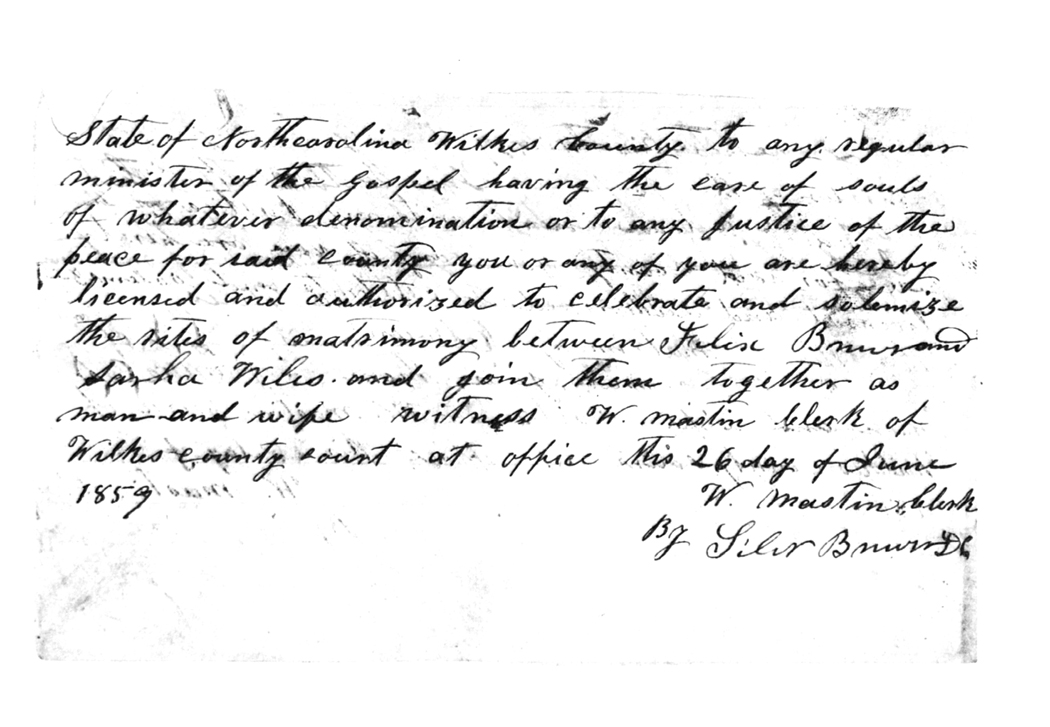 State of Northcarolina Wilkes County to any regular
minister of the Gospel having the care of souls
of whatever denomination or to any Justice of the
peace for said county you or any of you are hereby
licensed and authorized to celebrate and solemize
the rites of matrimony between Felix and
Sarha Wiles. and join them together as
man and wife witness W. Mastin Clerk of
Wilkes county court at office this 26 day of June
1859
W. Mastin Clerk
By DC